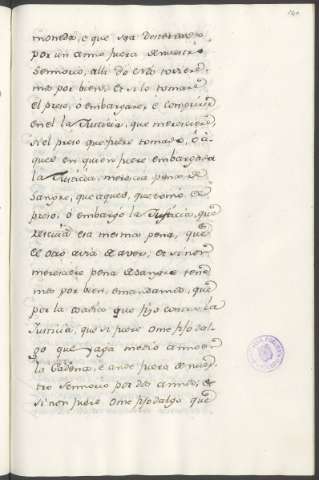 moneda, e que sea desterrado
por un anno fuera de nuestro
Sennorio, alli do Nos toviere-
mos por bien. Et si lo tomare
el preso, ó embargare, e compliere
en el la Justicia, que meresciere
si el preso que fuere tomado, ó á-
quel en quien fuere embargada
la Justicia, merescia pena de
Sangre, que aquel, que tomó el
preso, ó embargó la Justicia, que
resciba esa mesma pena, que
el otro avia de aver, et si non
meresciere pena de Sangre tene-
mos por bien, e mandamos, que
por la osadia que fizo contra la
Justicia, que si fuere ome fijodal-
go que yaga medio anno en
la Cadena, e ande fuera de nues-
tro Sennorio por dos annos, et
si non fuere ome fijodalgo que